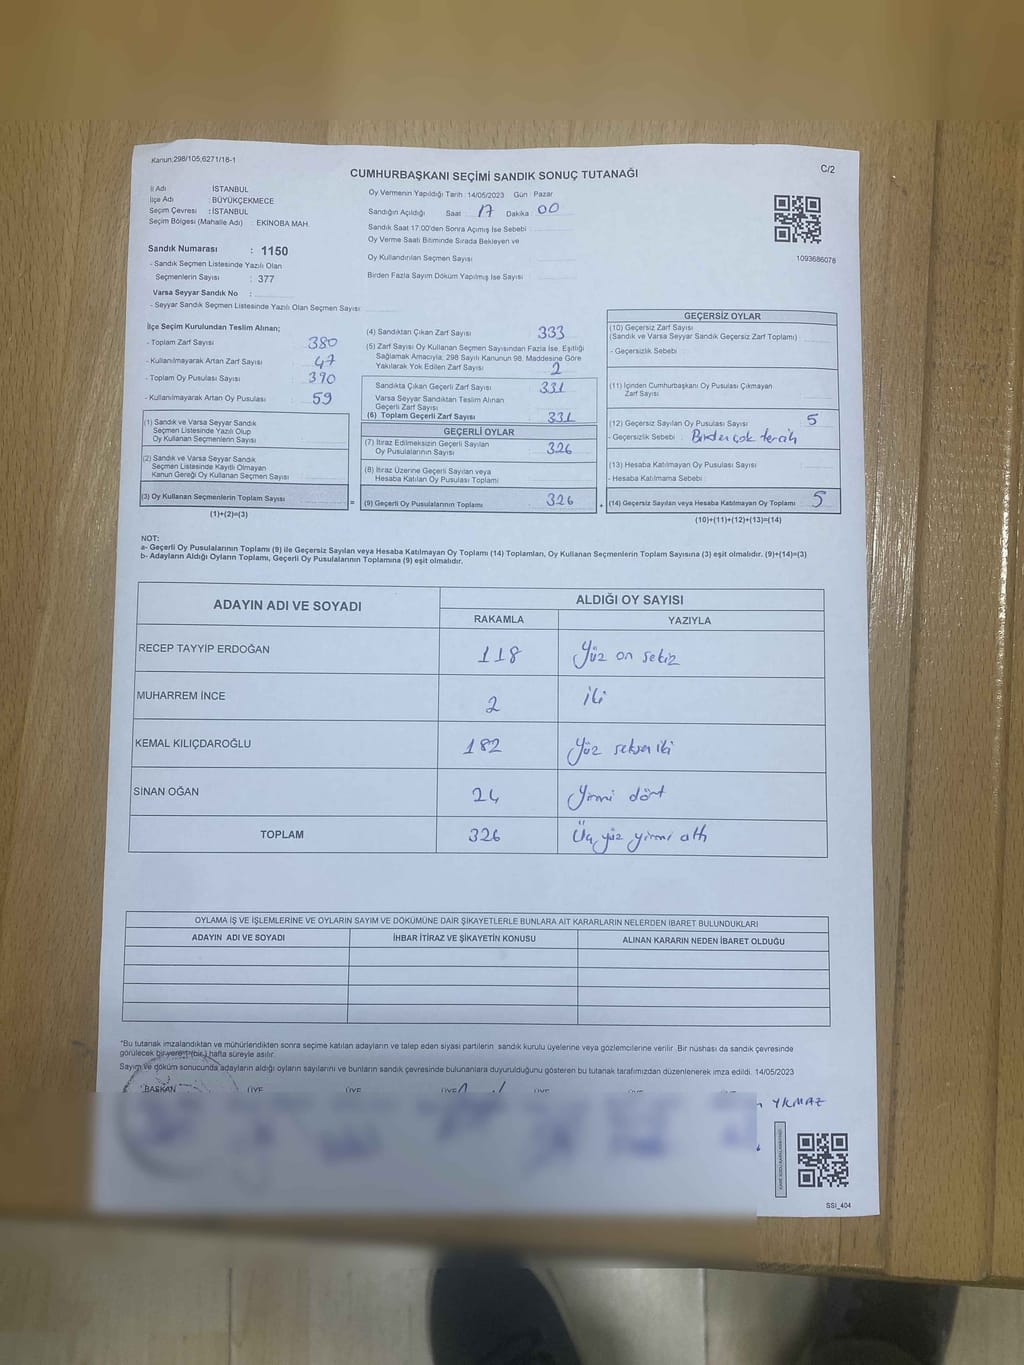 Kanun:298/105,6271/18-1
C/2
CUMHURBAŞKANI SEÇİMİ SANDIK SONUÇ TUTANAĞI
İl Adı : İSTANBUL
İlçe Adı : BÜYÜKÇEKMECE
Seçim Çevresi : İSTANBUL
Seçim Bölgesi (Mahalle Adı) : EKİNOBA MAH.
Sandık Numarası : 1150
- Sandık Seçmen Listesinde Yazılı Olan
Seçmenlerin Sayısı : 377
Varsa Seyyar Sandık No :
- Seyyar Sandık Seçmen Listesinde Yazılı Olan Seçmen Sayısı:
Oy Vermenin Yapıldığı Tarih : 14/05/2023 Gün : Pazar
Sandığın Açıldığı Saat : 17 Dakika : 00
Sandık Saat 17:00'den Sonra Açımış İse Sebebi :
Oy Verme Saati Bitiminde Sırada Bekleyen ve
Oy Kullandırılan Seçmen Sayısı :
Birden Fazla Sayım Döküm Yapılmış İse Sayısı :
1093686078
İlçe Seçim Kurulundan Teslim Alınan;
- Toplam Zarf Sayısı : 380
- Kullanılmayarak Artan Zarf Sayısı : 47
- Toplam Oy Pusulası Sayısı : 390
- Kullanılmayarak Artan Oy Pusulası : 59
(1) Sandık ve Varsa Seyyar Sandık
Seçmen Listesinde Yazılı Olup
Oy Kullanan Seçmenlerin Sayısı :
(2) Sandık ve Varsa Seyyar Sandık
Seçmen Listesinde Kayıtlı Olmayan
Kanun Gereği Oy Kullanan Seçmen Sayısı :
(3) Oy Kullanan Seçmenlerin Toplam Sayısı :
(1)+(2)=(3)
(4) Sandıktan Çıkan Zarf Sayısı : 333
(5) Zarf Sayısı Oy Kullanan Seçmen Sayısından Fazla İse, Eşitliği
Sağlamak Amacıyla, 298 Sayılı Kanunun 98. Maddesine Göre
Yakılarak Yok Edilen Zarf Sayısı : 2
Sandıkta Çıkan Geçerli Zarf Sayısı : 331
Varsa Seyyar Sandıktan Teslim Alınan
Geçerli Zarf Sayısı :
(6) Toplam Geçerli Zarf Sayısı : 331
GEÇERLİ OYLAR
(7) İtiraz Edilmeksizin Geçerli Sayılan
Oy Pusulasının Sayısı : 326
(8) İtiraz Üzerine Geçerli Sayılan veya
Hesaba Katılan Oy Pusulası Toplamı :
= (9) Geçerli Oy Pusulalarının Toplamı : 326
GEÇERSİZ OYLAR
(10) Geçersiz Zarf Sayısı
(Sandık ve Varsa Seyyar Sandık Geçersiz Zarf Toplamı) :
- Geçersizlik Sebebi :
(11) İçinden Cumhurbaşkanı Oy Pusulası Çıkmayan
Zarf Sayısı :
(12) Geçersiz Sayılan Oy Pusulası Sayısı : 5
- Geçersizlik Sebebi : Birden çok tercih
(13) Hesaba Katılmayan Oy Pusulası Sayısı :
- Hesaba Katılmama Sebebi :
+ (14) Geçersiz Sayılan veya Hesaba Katılmayan Oy Toplamı : 5
(10)+(11)+(12)+(13)=(14)
NOT:
a- Geçerli Oy Pusulalarının Toplamı (9) ile Geçersiz Sayılan veya Hesaba Katılmayan Oy Toplamı (14) Toplamları, Oy Kullanan Seçmenlerin Toplam Sayısına (3) eşit olmalıdır. (9)+(14)=(3)
b- Adayların Aldığı Oyların Toplamı, Geçerli Oy Pusulalarının Toplamına (9) eşit olmalıdır.
ADAYIN ADI VE SOYADI
ALDIĞI OY SAYISI
RAKAMLA YAZIYLA
RECEP TAYYİP ERDOĞAN 118 Yüz on sekiz
MUHARREM İNCE 2 iki
KEMAL KILIÇDAROĞLU 182 Yüz seksen iki
SİNAN OĞAN 24 Yirmi dört
TOPLAM 326 Üç yüz yirmi altı
OYLAMA İŞ VE İŞLEMLERİNE VE OYLARIN SAYIM VE DÖKÜMÜNE DAİR ŞİKAYETLERLE BUNLARA AİT KARARLARIN NELERDEN İBARET BULUNDUKLARI
ADAYIN ADI VE SOYADI İHBAR İTİRAZ VE ŞİKAYETİN KONUSU ALINAN KARARIN NEDEN İBARET OLDUĞU
"Bu tutanak imzalandıktan ve mühürlendikten sonra seçime katılan adayların ve talep eden siyasi partilerin sandık kurulu üyelerine veya gözlemcilerine verilir. Bir nüshası da sandık çevresinde
görülecek bir yere 1 (bir) hafta süreyle asılır.
Sayım ve döküm sonucunda adayların aldığı oyların sayılarını ve bunların sandık çevresinde bulunanlara duyurulduğunu gösteren bu tutanak tarafımızdan düzenlenerek imza edildi. 14/05/2023
BAŞKAN ÜYE ÜYE ÜYE ÜYE
YILMAZ
SSI_404